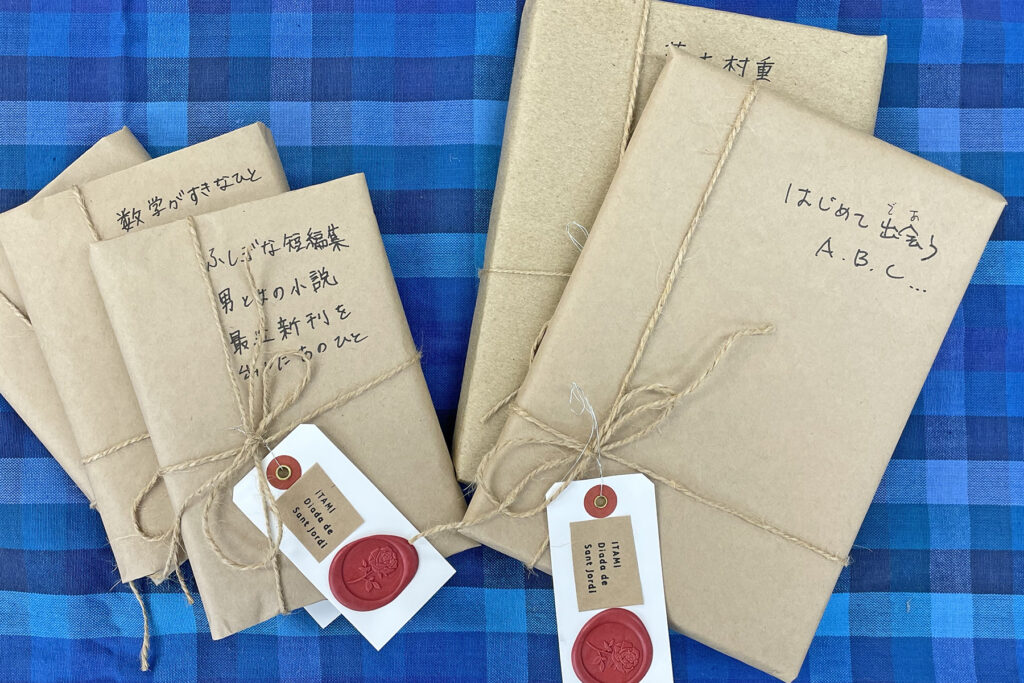 数学がすきなひと
ふしぎな短編集
男と女の小説
最近新刊を
のひと
村重
はじめて出会う
であ
A.B.C...
ITAMI
Diada de
Sant Jordi
ITAMI
Diada de
Sant Jordi